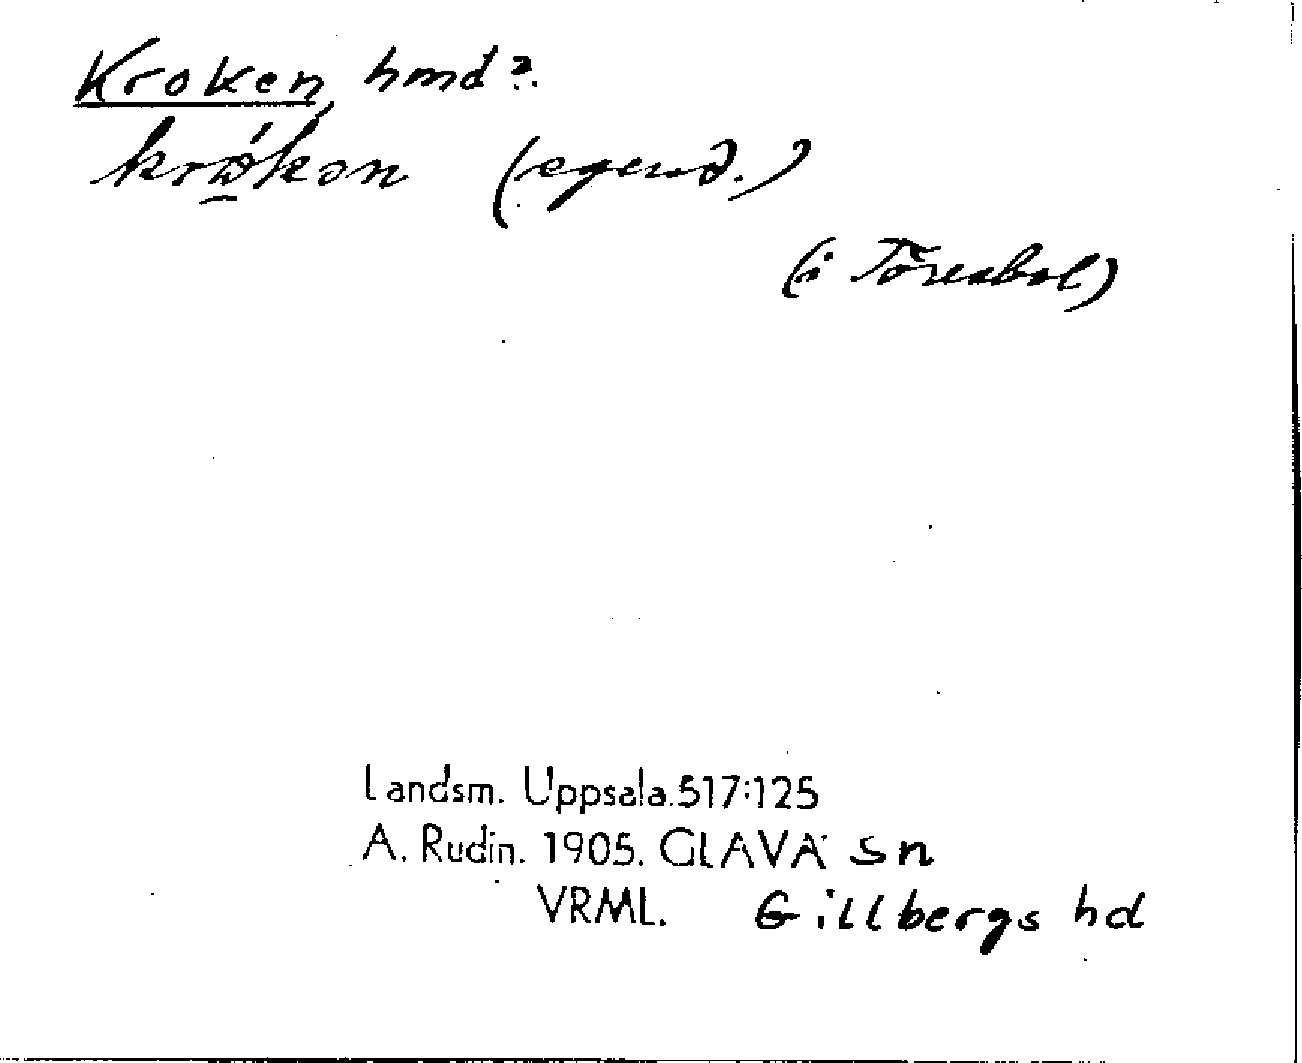 Kroken, hmd?.
krǿkən (egend.)
(i Töresbol)
Landsm. Uppsala.517:125
A. Rudin. 1905. GLAVA sn
VRML. Gillbergs hd